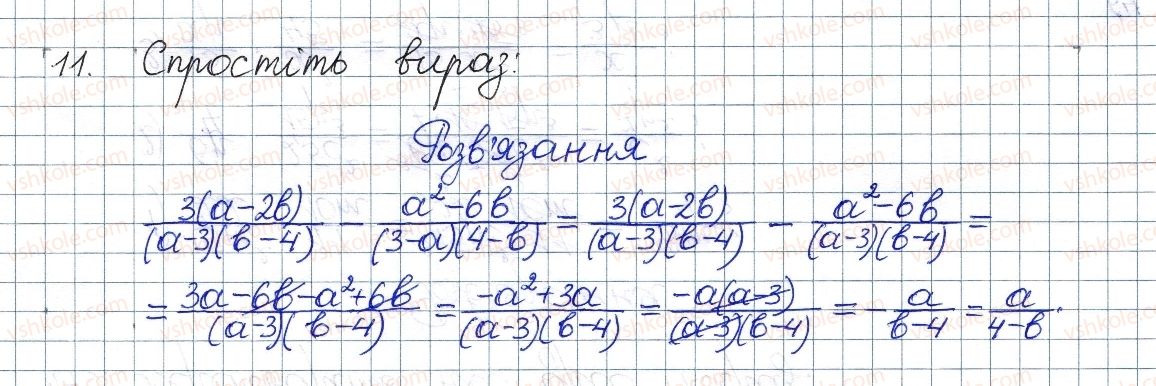 11. Спростіть вираз:
Розв'язання
3(a-2b)/(a-3)(b-4) - a²-6b/(3-a)(4-b) = 3(a-2b)/(a-3)(b-4) - a²-6b/(a-3)(b-4) =
= 3a-6b-a²+6b/(a-3)(b-4) = -a²+3a/(a-3)(b-4) = -a(a-3)/(a-3)(b-4) = - a/b-4 = a/4-b.